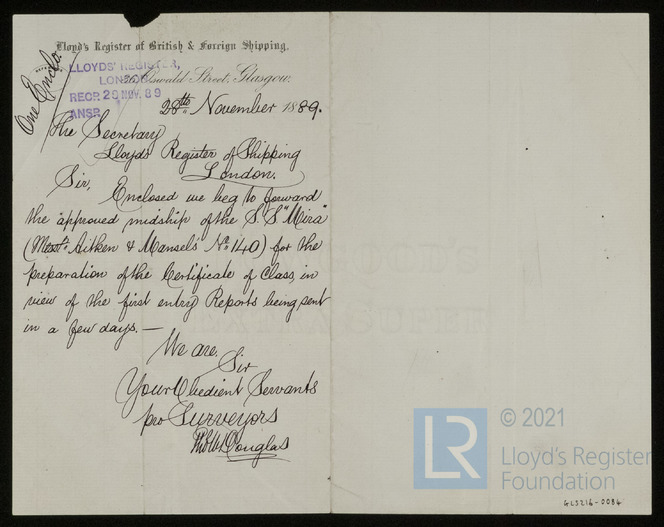 Lloyd's Register of British & Foreign Shipping.
One Enclo.
LLOYDS' REGISTER,
LONDON
RECP 29 NOV. 89
ANSR
36, Oswald Street, Glasgow.
28th November 1889.
The Secretary
Lloyds Register of Shipping
London.
Sir,
Enclosed we beg to forward
the approved midship of the S.S. "Mira"
(Messrs. Aitken & Mansel's No. 140) for the
preparation of the Certificate of Class, in
view of the first entry Reports being sent
in a few days. —
We are,
Sir
Your Obedient Servants
pro Surveyors
Douglas
LR
© 2021
Lloyd's Register
Foundation
GLS216-0084